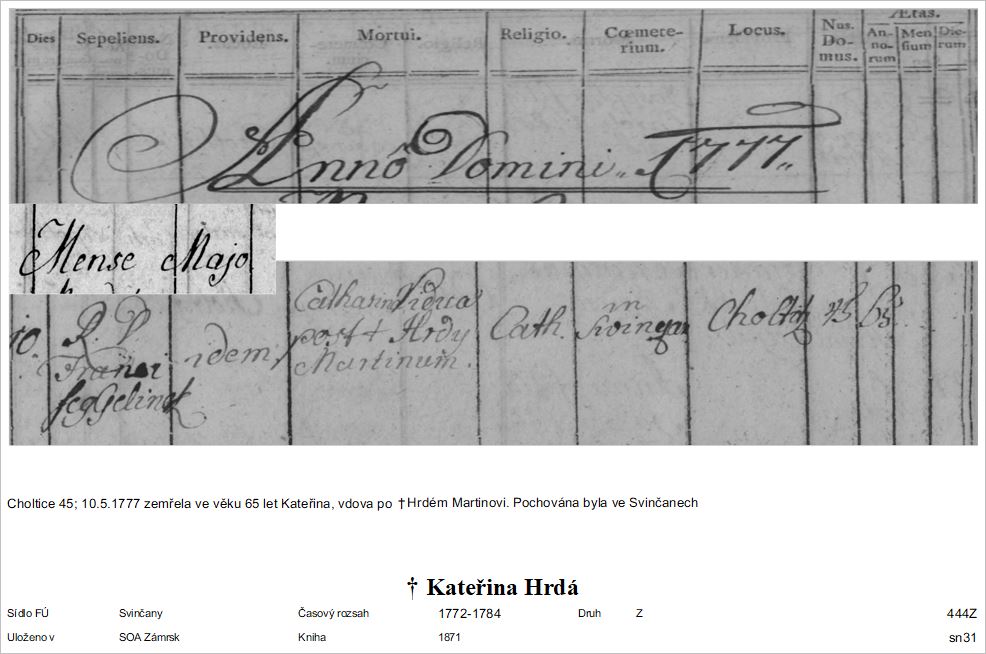 Dies Sepeliens. Providens. Mortui. Religio. Cœmeterium. Locus. Nus. Domus. Ætas. Annorum Mensium Dierum
Anno Domini 1777
Mense Majo
10. P. V. idem Catharina Vidua Cath. in Choltitz 45 65
post † Hrdy Svinczan
Martinum.
Choltice 45; 10.5.1777 zemřela ve věku 65 let Kateřina, vdova po †Hrdém Martinovi. Pochována byla ve Svinčanech
† Kateřina Hrdá
Sídlo FÚ Svinčany Časový rozsah 1772-1784 Druh Z 444Z
Uloženo v SOA Zámrsk Kniha 1871 sn31